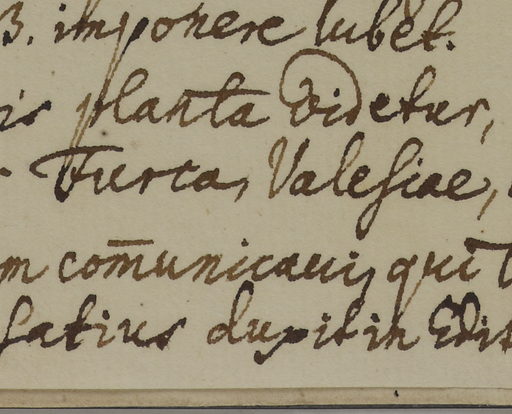 B. imponere lubet.
is planta videtur,
Furca, Valesiae,
m com̄unicavi, qui
satius duxit in Edit